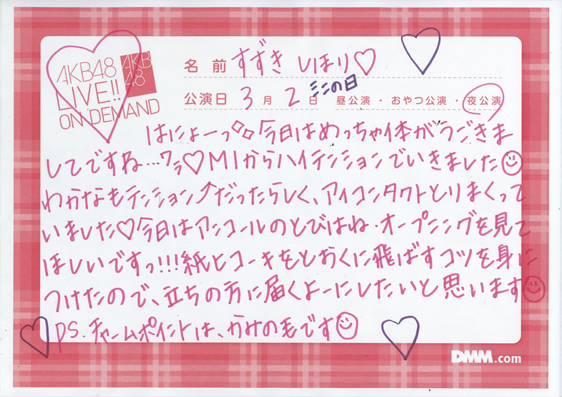 AKB48
LIVE!!
ON DEMAND
AKB
48
名前 すずき しほり♡
ミニの日
公演日 3月 2日 昼公演・おやつ公演・夜公演
はにょーっ 今日はめっちゃ体がうごきま
してですね…ワラ♡M1からハイテンションでいきました☺
わかなもテンション⤴だったらしく、アイコンタクトとりまくって
いました♡今日はアンコールのとびはね・オープニングを見て
ほしいですっ!!!紙ヒコーキをとおくに飛ばすコツを身に
つけたので、立ちの方に届くよーにしたいと思います☺
PS.チャームポイントは、かみの毛です☺
DMM.com